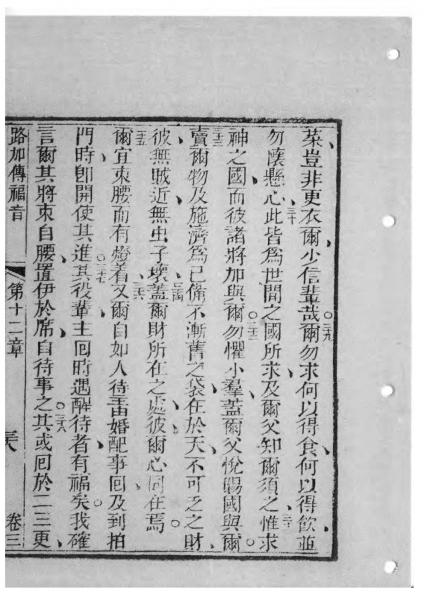 菜豈非更衣爾小信輩哉二九爾勿求何以得食何以得飲並
勿陰懸心三十此皆爲世間之國所求及爾父知爾須之三一惟求
神之國而彼諸將加與爾三二勿懼小羣蓋爾父悅賜國與爾
三三賣爾物及施濟爲己備不漸舊之袋在於天不可乏之財
彼無賊近無虫子壞三四蓋爾財所在之處彼爾心同在焉
三五爾宜束腰而有燈着三六又爾自如人待主由婚配事囘及到拍
門時卽開使其進三七其役輩主囘時遇醒待者有福矣我確
言爾其將束自腰置伊於席自待事之三八其或囘於二三更
路加傳福音 第十二章 卷三